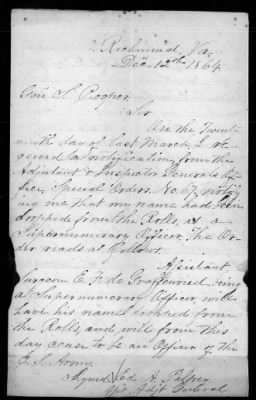 Richmond, Va.
Dec. 12th 1864.
Gen. S. Cooper.
Sir
On the Twenty
ninth day of last March, I re-
ceived a notification from the
Adjutant & Inspector Generals Of-
fice, Special Orders No. 67, notify-
ing me that my name had been
dropped from the Rolls, as a
Supernumerary Officer. The Or-
der reads as follows.
Assistant
Surgeon E. F. de Graffenried, being
a Supernumerary Officer, will
have his name dropped from
the Rolls, and will from this
day cease to be an Officer of the
C. S. Army.
Signed, Ed. A. Palfrey
Adjt. General